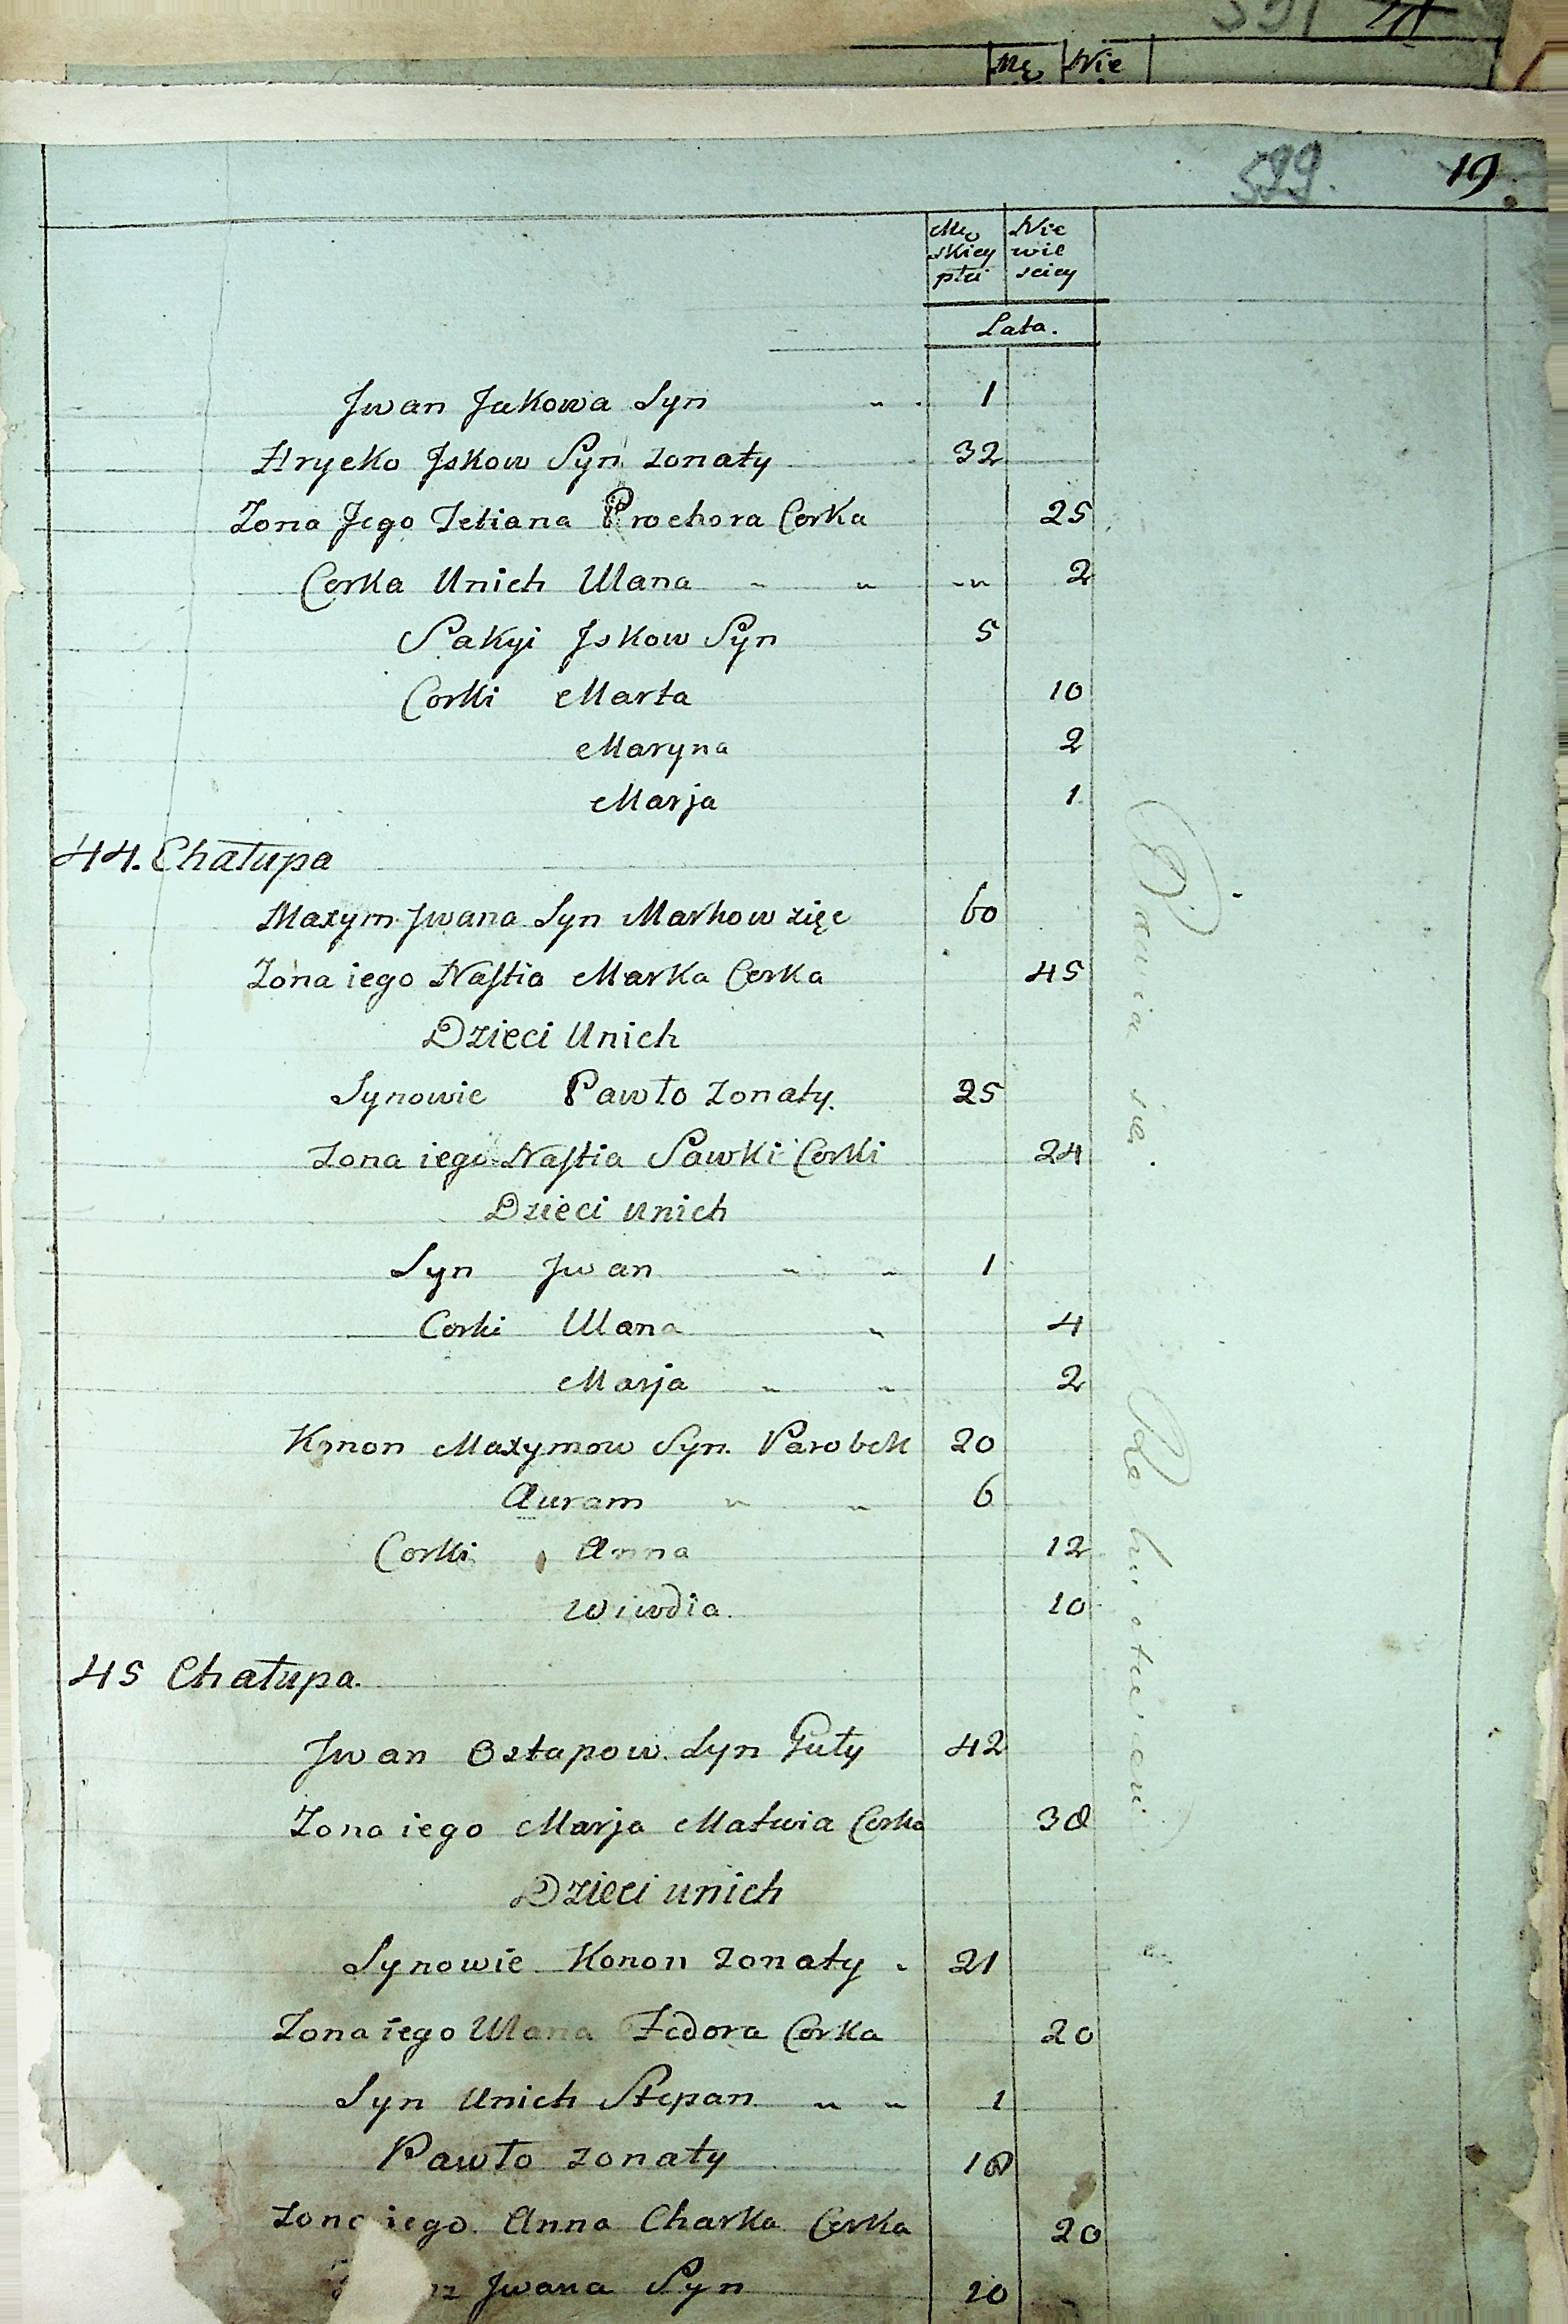 Mę Nie
599. 19.
Mę Nie
skiey wie
płci sciey
Lata.
Jwan Jakowa Syn 1
Hryćko Jskow Syn zonaty 32
Zona Jego Tetiana Prochora Corka 25
Corka Unich Ulana 2
Sakyi Jskow Syn 5
Corki Marta 10
Maryna 2
Marja 1
44. Chałupa
Maxym Jwana Syn Markow zięc 60
Zona iego Nastia Marka Corka 45
Dzieci Unich
Synowie Pawło zonaty. 25
Zona iego Nastia Sawki Corki 24
Dzieci unich
Syn Jwan 1
Corki Ulana 4
Marja 2
Konon Maxymow Syn. Parobek 20
Auram 6
Corki Anna 12
Wiwdia. 10
45 Chałupa.
Jwan Ostapow. Syn Guty 42
Zona iego Marja Matwia Corka 38
Dzieci unich
Synowie Konon zonaty 21
Zona iego Ulana Fedora Corka 20
Syn Unich Stepan 1
Pawło zonaty 18
Zona iego. Anna Charka Corka 20
Jwana Syn 10